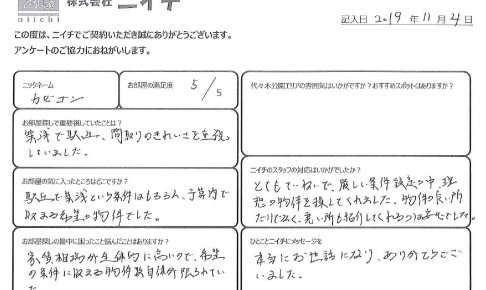 株式会社ニイチ
niichi
記入日 2019年11月4日
この度は、ニイチでご契約いただき誠にありがとうございます。
アンケートのご協力におねがいします。
ニックネーム
カビゴン
お部屋の満足度 5/5
お部屋探しで重要視していたことは?
築浅で駅近、間取りのきれいさを重視
していました。
お部屋の気に入ったところはどこですか?
駅近で築浅という条件はもちろん、予算内で
収まる希望の物件でした。
お部屋探しの最中に困ったこと悩んだことはありますか?
家賃相場が全体的に高いので、希望
の条件に収まる物件数自体が限られてい
た。
代々木公園エリアの雰囲気はいかがですか?おすすめスポットはありますか?
ニイチのスタッフの対応はいかがでしたか?
とてもていねいで、厳しい条件設定の中、理
想の物件を探してくれました。物件の良い所
だけでなく、悪い所も紹介してくれるのは安心でした。
ひとことニイチにメッセージを
本当にお世話になり、ありがとうござ
いました。